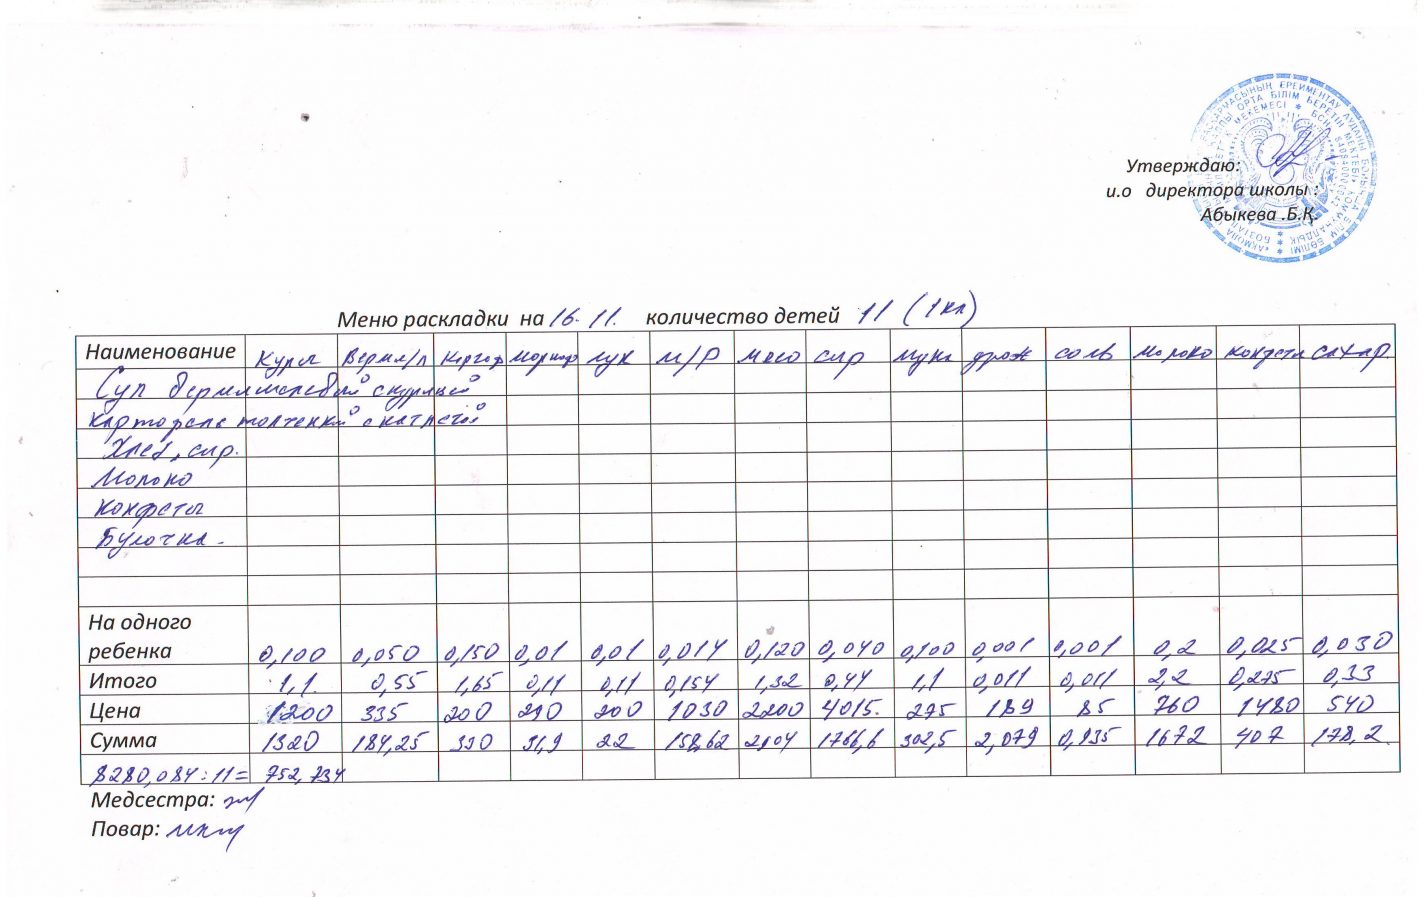 Утверждаю:
и.о директора школы :
Абыкева .Б.Қ.
Меню раскладки на 16. 11. количество детей 11 (1кл)
Наименование Куры Верм/л Картоф Морков лук м/р мясо сыр мука дрож соль молоко конфеты сахар.
Суп вермишелевый с курицей
Картофель толченый с котлетой
Хлеб, сыр.
Молоко
Конфеты
Булочка.
На одного
ребенка 0,100 0,050 0,150 0,01 0,01 0,014 0,120 0,040 0,100 0,001 0,001 0,2 0,025 0,030
Итого 1,1 0,55 1,65 0,11 0,11 0,154 1,32 0,44 1,1 0,011 0,011 2,2 0,275 0,33
Цена 1200 335 200 290 200 1030 2200 4015. 275 189 85 760 1480 540
Сумма 1320 184,25 330 31,9 22 158,62 2904 1766,6 302,5 2,079 0,935 1672 407 178,2
8280,084:11= 752,734
Медсестра:
Повар: